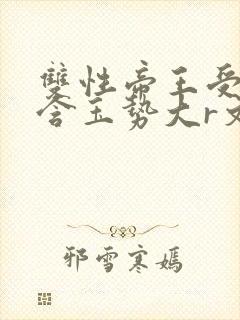 雙性帝王受
含玉勢大r文
邪雪寒嫣